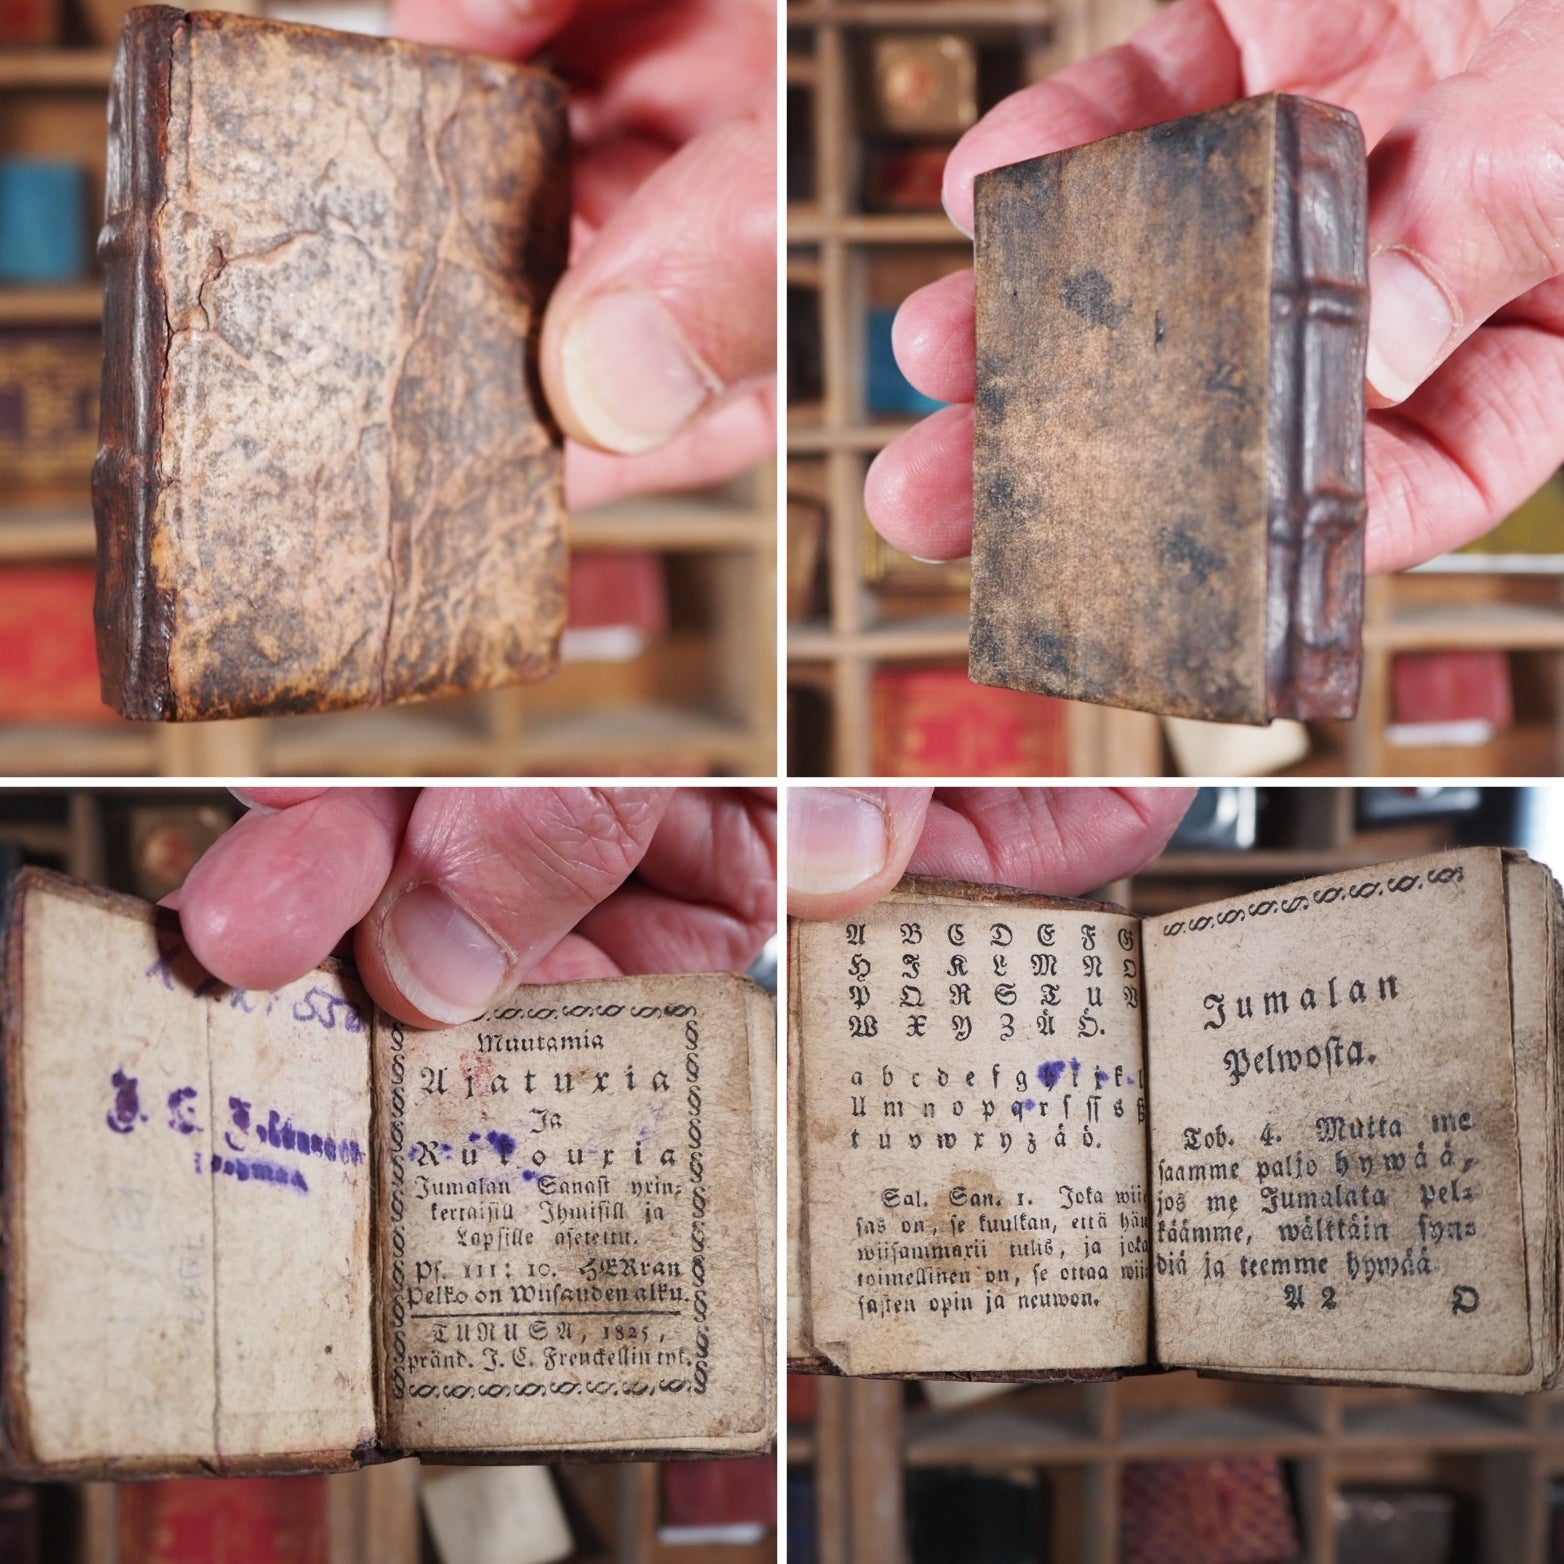 550
J. E.
Muutamia
Ajatuxia
Ja
Rukouxia
Jumalan Sanast yxin-
kertaisill Ihmisill ja
Lapsille asetettu.
Ps. 111: 10. HERran
Pelko on Wiisauden alku.
TURUSA, 1825,
pränd. J. C. Frenckellin tyk.
A B C D E F G
H I K L M N O
P Q R S T U V
W X Y Z Å Ö.
a b c d e f g h i j k l
ll m n o p q r s ss s ß
t u v w x y z ä ö.
Sal. San. 1. Joka wii-
sas on, se kuulkan, että hän
wiisammaxi tulis, ja joka
toimellinen on, se ottaa wii-
sasten opin ja neuwon.
Jumalan
Pelwosta.
Tob. 4. Mutta me
saamme paljo hywää,
jos me Jumalata pel-
käämme, wältkäin syn-
diä ja teemme hywää
A 2 O